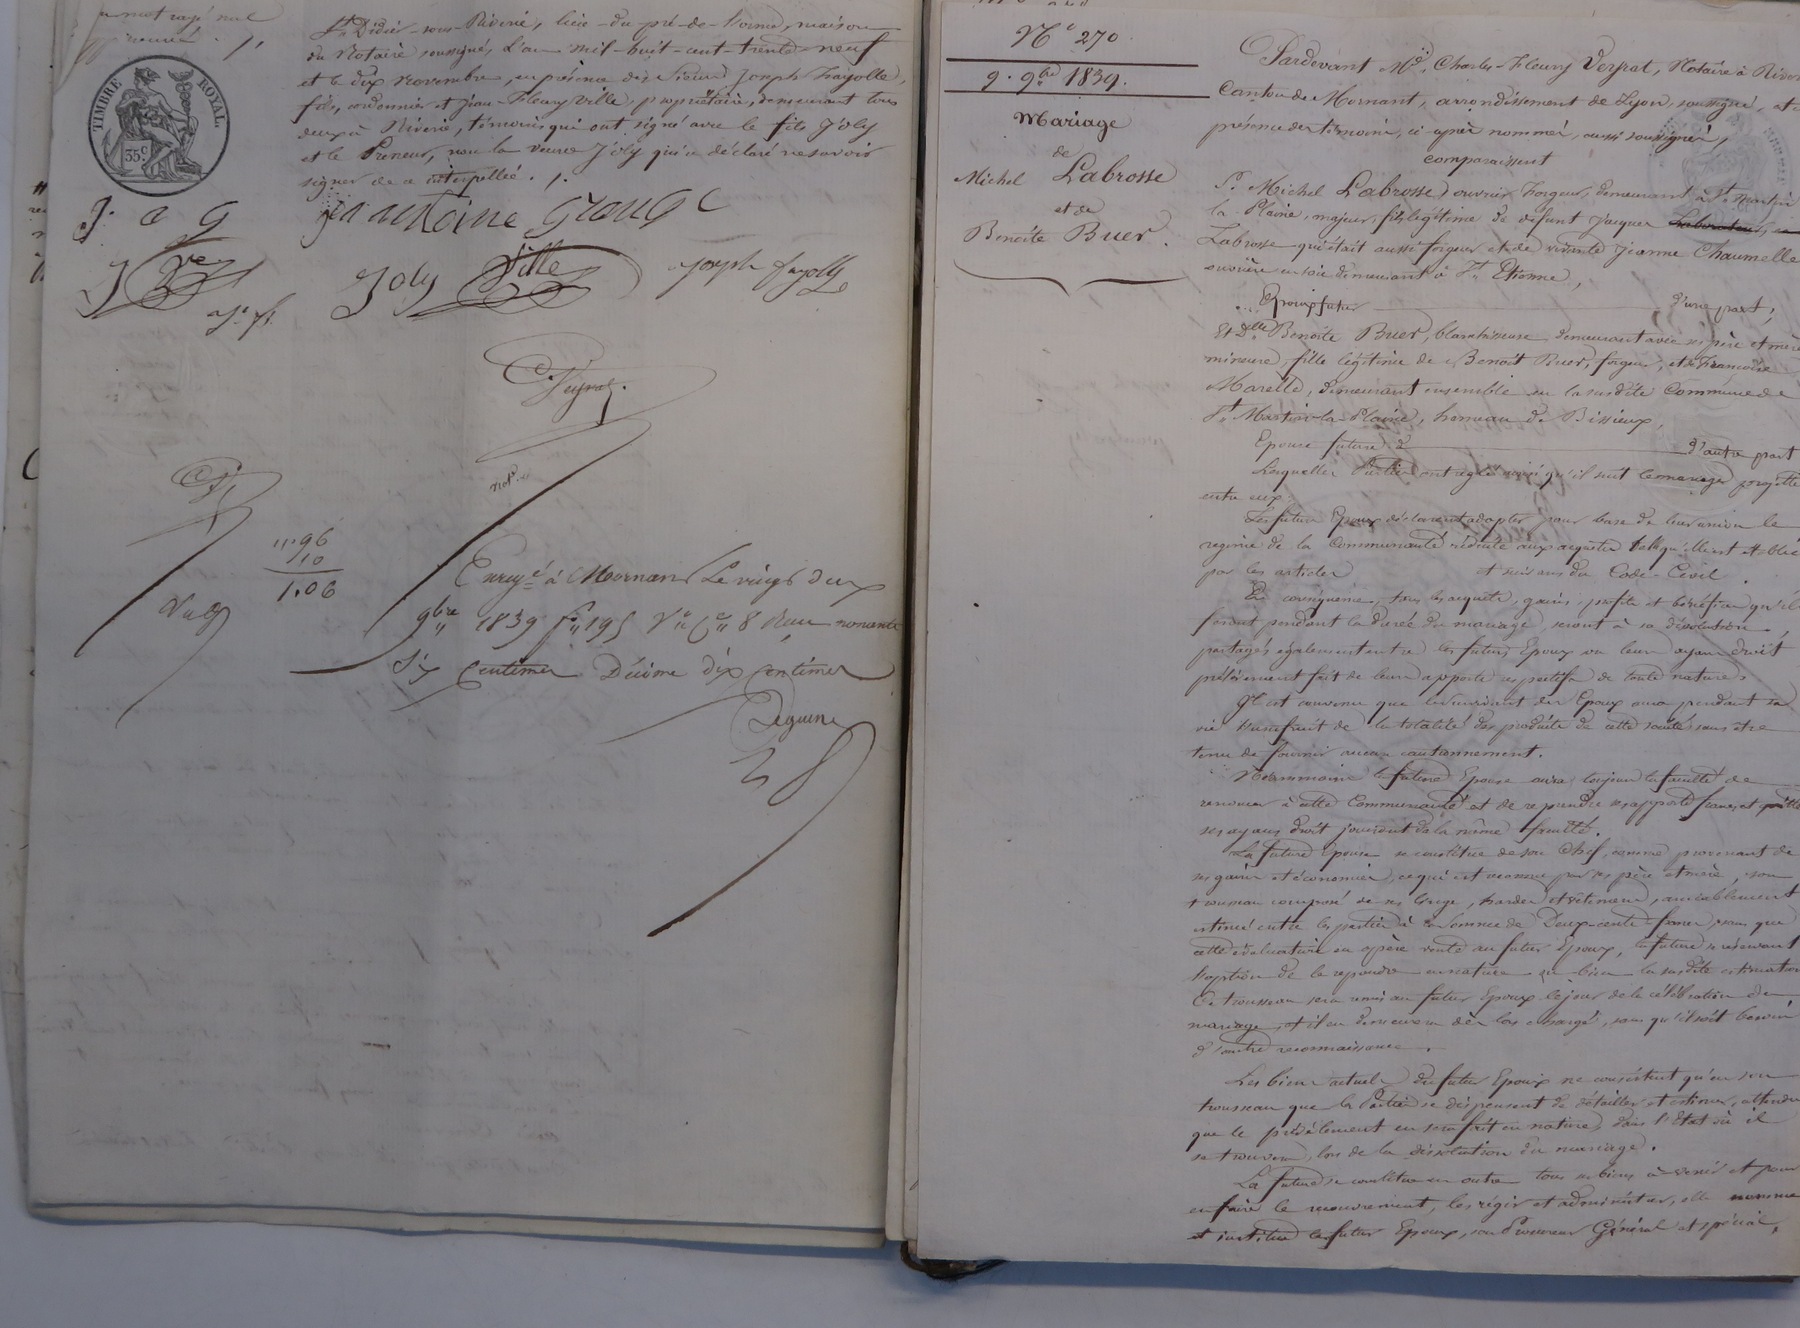 un mot rayé nul
St Didier-sous-Riverie, lieu-du-pré-de-    , maison
du Notaire soussigné, L'an mil-huit-cent-trente-neuf
et le dix Novembre, en présence des Sieurs Joseph Fayolle,
fils, cordonnier et Jean-Fleury Ville, propriétaire, demeurant tous
deux à Riverie, témoins qui ont signé avec le fils Joly
et le Preneur, non la veuve Joly qui a déclaré ne savoir
signer de ce interpellée ./.
TIMBRE ROYAL
35 c
J. a G
jn antoine
Joly
Ville
joseph fayolle
Veyrat
notre
96
10
1.06
Enregé à Mornant Le vingt deux
9bre 1839 fo 195 Vo Ce 8 Reçu nonante
Six Centimes Décime dix Centimes
No 270.
9. 9bre 1839.
Mariage
de
Michel Labrosse
et de
Benoite Buer.
Pardevant Me Charles-Fleury Veyrat, Notaire à Riverie
Canton de Mornant, arrondissement de Lyon, soussigné, et en
présence des témoins, ci-après nommés, aussi soussignés,
comparaissent
Sr Michel Labrosse, ouvrier forgeur, demeurant à St Martin
la Plaine, majeur, fils légitime de défunt Jacques
Labrosse qui était aussi forgeur et de vivante Jeanne Chaumelle
ouvrière en soie demeurant à St Etienne,
Epoux futur d'une part;
Et Dlle Benoite Buer, blanchisseuse, demeurant avec ses père et mère
mineure, fille légitime de Benoit Buer, forgeur, et de Françoise
Marelle, demeurant ensemble en la susdite Commune de
St Martin-la-Plaine, hameau de Bissieux,
Epouse future d'autre part
Lesquelles Parties ont réglé ainsi qu'il suit le mariage projetté
entre eux:
Les futurs Epoux déclarent adopter pour base de leur union le
régime de la Communauté réduite aux acquêts telle qu'elle est établie
par les articles et suivans du Code-Civil.
En conséquence, tous les acquêts, gains, profits et bénéfices qu'ils
feront pendant la durée du mariage, seront à sa dissolution,
partagés également entre les futurs Epoux ou leurs ayans droit,
prélèvement fait de leurs apports respectifs de toute nature.
Il est convenu que le survivant des Epoux aura pendant sa
vie l'usufruit de la totalité des produits de cette société sans être
tenu de fournir aucun cautionnement.
Néanmoins la future Epouse aura toujours la faculté de
renoncer à cette Communauté et de reprendre ses apports francs et quittes
ses ayans droit jouiront de la même faculté.
La future Epouse se constitue de son Chef, comme provenant de
ses gains et économies, ce qui est reconnu par ses père et mère, son
trousseau composé de ses linge, hardes et vêtemens, amiablement
estimé entre les parties à la somme de Deux-cents francs, sans que
cette évaluation en opère vente au futur Epoux, la future se réservant
l'option de le reprendre en nature ou bien la susdite estimation
Ce trousseau sera remis au futur Epoux le jour de la célébration du
mariage, et il en demeurera dès lors chargé, sans qu'il soit besoin
d'autre reconnaissance.
Les biens actuels du futur Epoux ne consistent qu'en son
trousseau que les Parties se dispensent de détailler et estimer, attendu
que le prélèvement en sera fait en nature, dans l'état où il
se trouvera, lors de la dissolution du mariage.
La future se constitue en outre tous ses biens à venir et pour
en faire le recouvrement, les régir et administrer, elle nomme
et institue le futur Epoux, son Procureur Général et spécial,